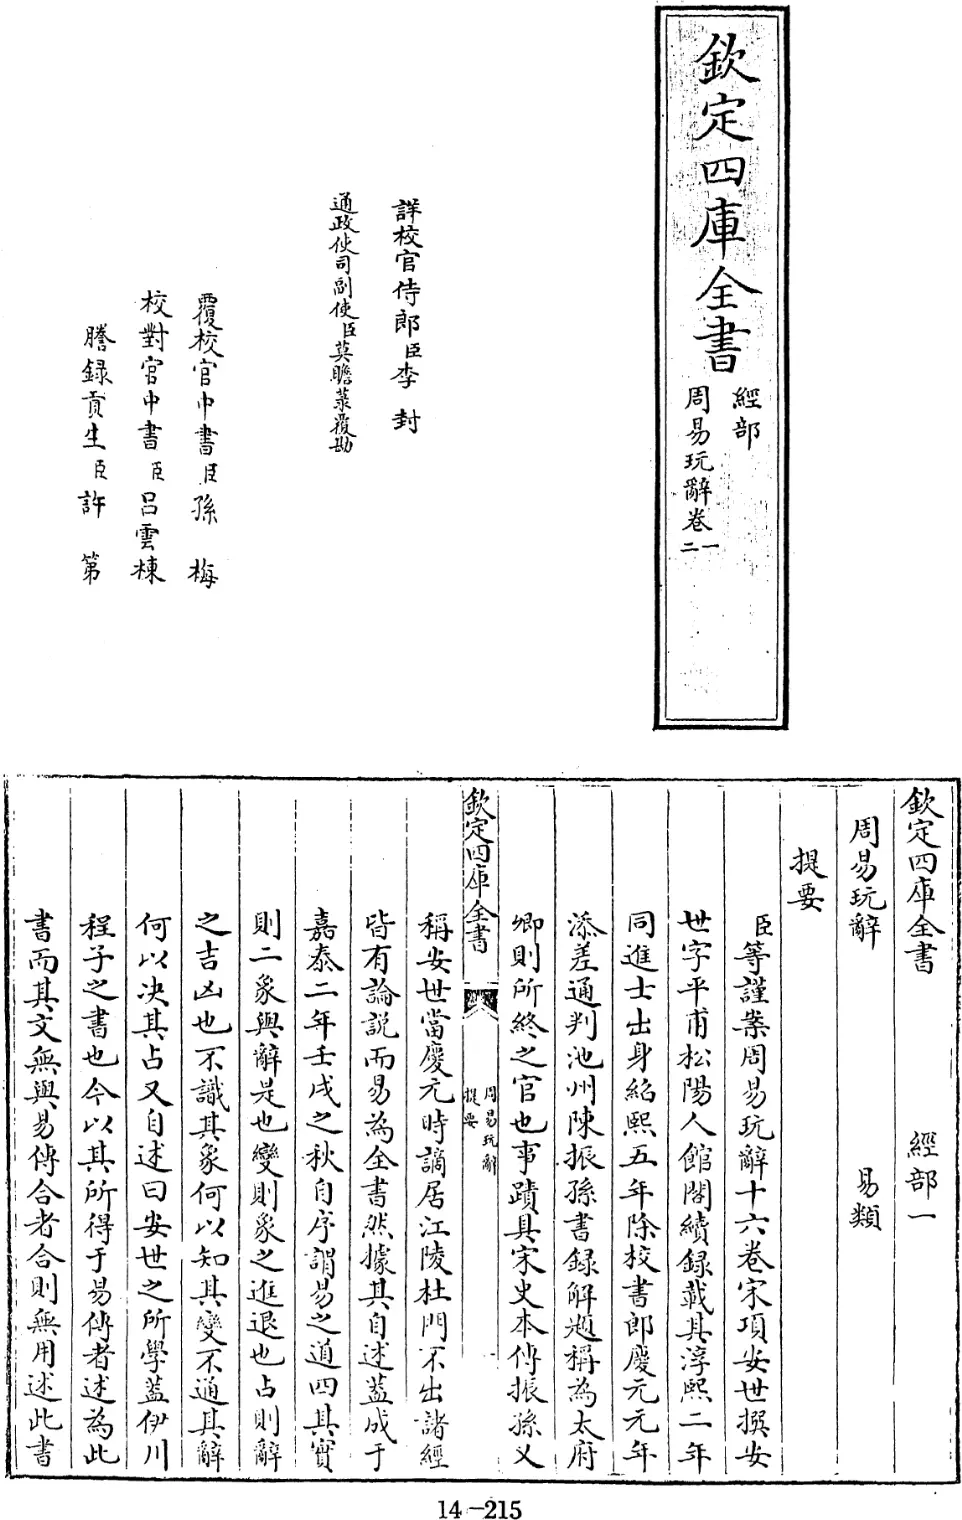 欽定四庫全書
經部
周易玩辭卷一二
詳校官侍郎臣李封
通政使司副使臣莫瞻菉覆勘
覆校官中書臣孫梅
校對官中書臣呂雲棟
謄録貢生臣許第
欽定四庫全書 經部一
周易玩辭 易類
提要
臣等謹案周易玩辭十六卷宋項安世撰安
世字平甫松陽人館閣續録載其淳熙二年
同進士出身紹熙五年除校書郎慶元元年
添差通判池州陳振孫書録解題稱為太府
卿則所終之官也事蹟具宋史本傳振孫又
欽定四庫全書
周易玩辭
提要
稱安世當慶元時謫居江陵杜門不出諸經
皆有論説而易為全書然據其自述蓋成于
嘉泰二年壬戌之秋自序謂易之道四其實
則二象與辭是也變則象之進退也占則辭
之吉凶也不識其象何以知其變不通其辭
何以决其占又自述曰安世之所學蓋伊川
程子之書也今以其所得于易傳者述為此
書而其文無與易傳合者合則無用述此書
14-215